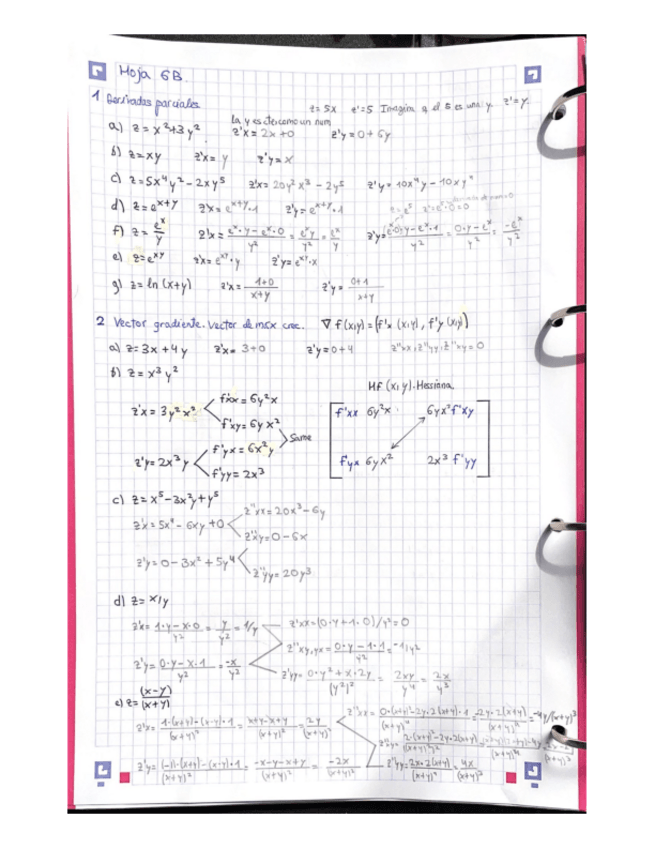 Hoja 6B.
1 Derivadas parciales z=5x z'=5 Imagina q el 5 es una y. z'=y.
la y es ctercomo un num
a) z=x²+3y² z'x=2x+0 z'y=0+6y
b) z=xy z'x=y z'y=x
c) z=5x⁴y²-2xy⁵ z'x=20y²x³-2y⁵ z'y=10x⁴y-10xy⁴
d) z=e^(x+y) z'x=e^(x+y)·1 z'y=e^(x+y)·1
f) z=e^x/y z'x=(e^x·y-e^x·0)/y²=e^x y/y²=e^x/y z'y=(e^x·0·y-e^x·1)/y²=(0·y-e^x)/y²=-e^x/y²
e) z=e^(xy) z'x=e^(xy)·y z'y=e^(xy)·x
g) z=ln(x+y) z'x=(1+0)/(x+y) z'y=(0+1)/(x+y)
2 Vector gradiente. Vector de máx crec. ∇f(x,y)=(f'x(x,y), f'y(x,y))
a) z=3x+4y z'x=3+0 z'y=0+4 z''xx, z''yy, z''xy=0
b) z=x³y²
Hf(x,y). Hessiana.
z'x=3y²x² f'xx=6y²x
f'xy=6yx²
Same
z'y=2x³y f'yx=6x²y
f'yy=2x³
f'xx 6y²x 6yx² f'xy
f'yx 6yx² 2x³ f'yy
c) z=x⁵-3x²y+y⁵
z'x=5x⁴-6xy+0 z''xx=20x³-6y
z''xy=0-6x
z'y=0-3x²+5y⁴
z''yy=20y³
d) z=x/y
z'x=(1·y-x·0)/y²=y/y²=1/y z'xx=(0·y+1·0)/y²=0
z''xy,yx=(0·y-1·1)/y²=-1/y²
z'y=(0·y-x·1)/y²=-x/y² z''yy=(0·y²+x·2y)/(y²)²=2xy/y⁴=2x/y³
e) z=(x-y)/(x+y)
z'x=(1·(x+y)-(x-y)·1)/(x+y)²=(x+y-x+y)/(x+y)²=2y/(x+y)²
z'y=((-1)·(x+y)-(x-y)·1)/(x+y)²=(-x-y-x+y)/(x+y)²=-2x/(x+y)² z''yy=2x·2(x+y)/(x+y)⁴=4x/(x+y)³